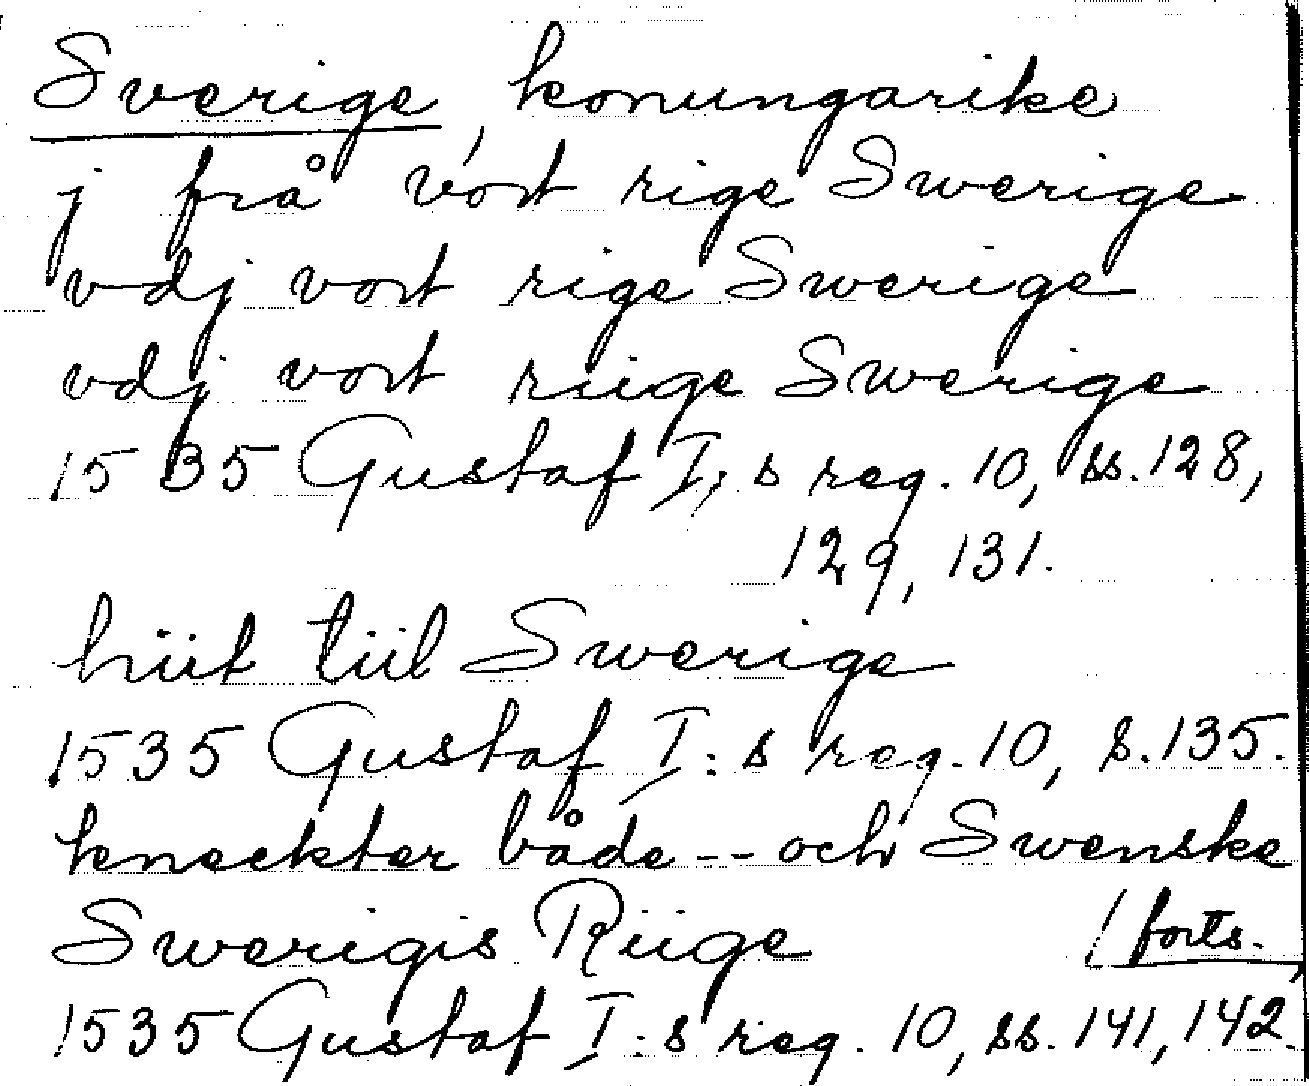 Sverige, konungarike
j frå vort rige Swerige
vdj vort rige Swerige
vdj vort riige Swerige
1535 Gustaf I:s reg. 10, ss. 128,
129, 131.
hiit tiil Swerige
1535 Gustaf I:s reg. 10, s. 135.
kneckter både -- och Swenske
Swerigis Riige
/forts.
1535 Gustaf I:s reg. 10, ss. 141, 142.